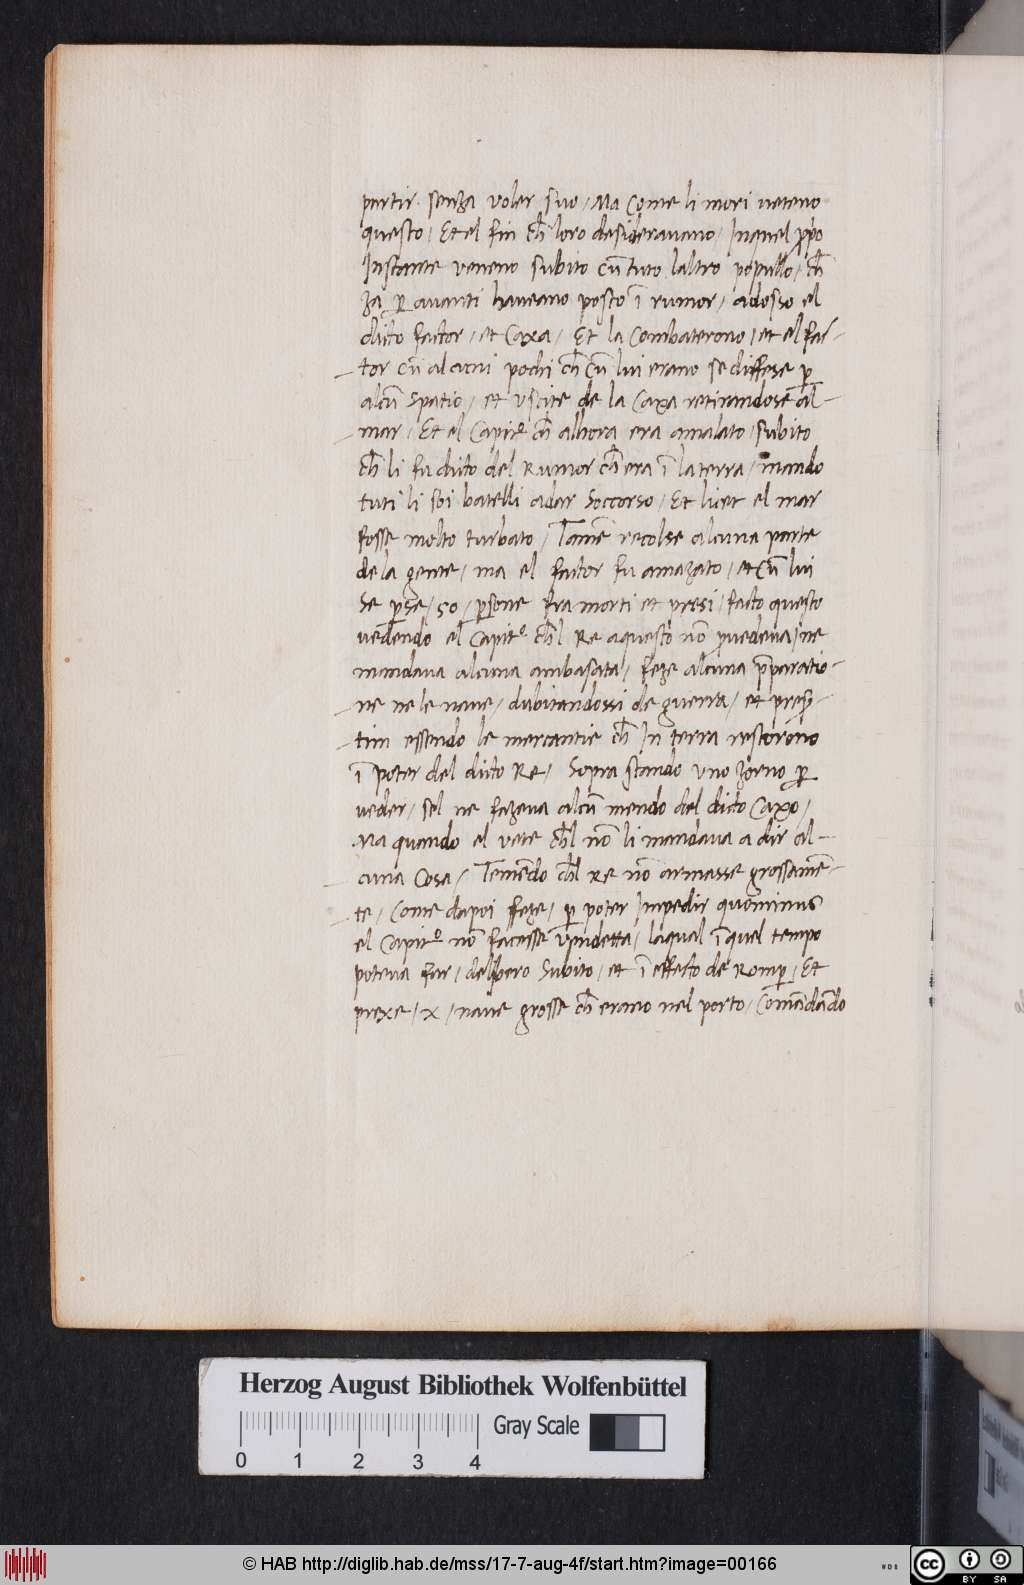 partir senza voler suo / Ma Come li mori veteno
questo / Et el fin ch̄ loro desideravano / In quel pp̄o
Instante veneno subito cū tuto laltro popullo / ch̄
za p̱ avanti haveano posto ī rumor / adosso el
dicto factor / et Caxa / Et la Combaterono / et el fac-
-tor cū alcuni pochi ch̄ cū lui erano se diffese p̱
alcū spatio / et uscite de la Caxa retirandose al-
-mar / Et el Capitº ch̄ alhora era amalato / subito
ch̄ li fu dicto del Rumor ch̄ era ī la terra / mando
tuti li soi batelli adar Soccorso / Et licet el mar
fosse molto turbato / Tamē recolse alcuna parte
dela gente / ma el factor fu amazato / et cū lui
Se p̱se / 50 / p̱sone fra morti et presi / facto questo
vedendo el Capitº ch̄l Re aquesto nō p̱vedeva / ne
mandava alcuna ambasata / feze alcuna p̄paratio-
-ne ne le nave / dubitandossi de guerra / et preser-
-tim essendo le mercantie ch̄ In terra restorono
ī poter del dicto Re / Sopra stando uno zorno p̱
veder / sel ne fazeva alcū mendo del dicto Caxo /
Ma quando el vete ch̄l nō li mandava a dir al-
-cuna Cosa / Temēdo ch̄l Re nō armasse grossamē-
-te / Come dapoi ffeze / p̱ poter Impedir quominus
el Capitº nō facesse vendetta / laqual ī quel tempo
poteva far / delibero Subito / et ī effecto de Romp̱ / Et
prexe / x / nave grosse ch̄ erano nel porto / Comādādo
Herzog August Bibliothek Wolfenbüttel
Gray Scale
0 1 2 3 4
© HAB http://diglib.hab.de/mss/17-7-aug-4f/start.htm?image=00166
WDB
cc BY SA